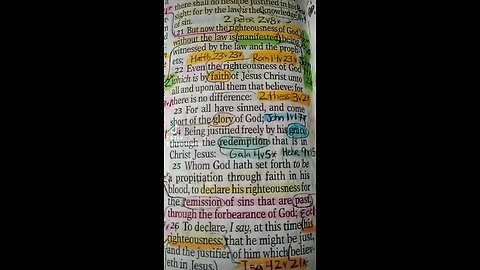 there shall no flesh be justified in his
sight: for by the law is the knowledge
of sin. 2 peter 2v8*
21 But now the righteousness of God
without the law is manifested, being
witnessed by the law and the proph-
ets; Matth 23v23* Rom 1v23*
22 Even the righteousness of God
which is by faith of Jesus Christ unto
all and upon all them that believe: for
there is no difference: 2 thess 3v2*
23 For all have sinned, and come
short of the glory of God; John 1v17*
24 Being justified freely by his grace
through the redemption that is in
Christ Jesus: Gala 4v5* Hebr 9v15
25 Whom God hath set forth to be
a propitiation through faith in his
blood, to declare his righteousness for
the remission of sins that are past,
through the forbearance of God;
26 To declare, I say, at this time his
righteousness: that he might be just,
and the justifier of him which believ-
eth in Jesus. Isa 42v21*